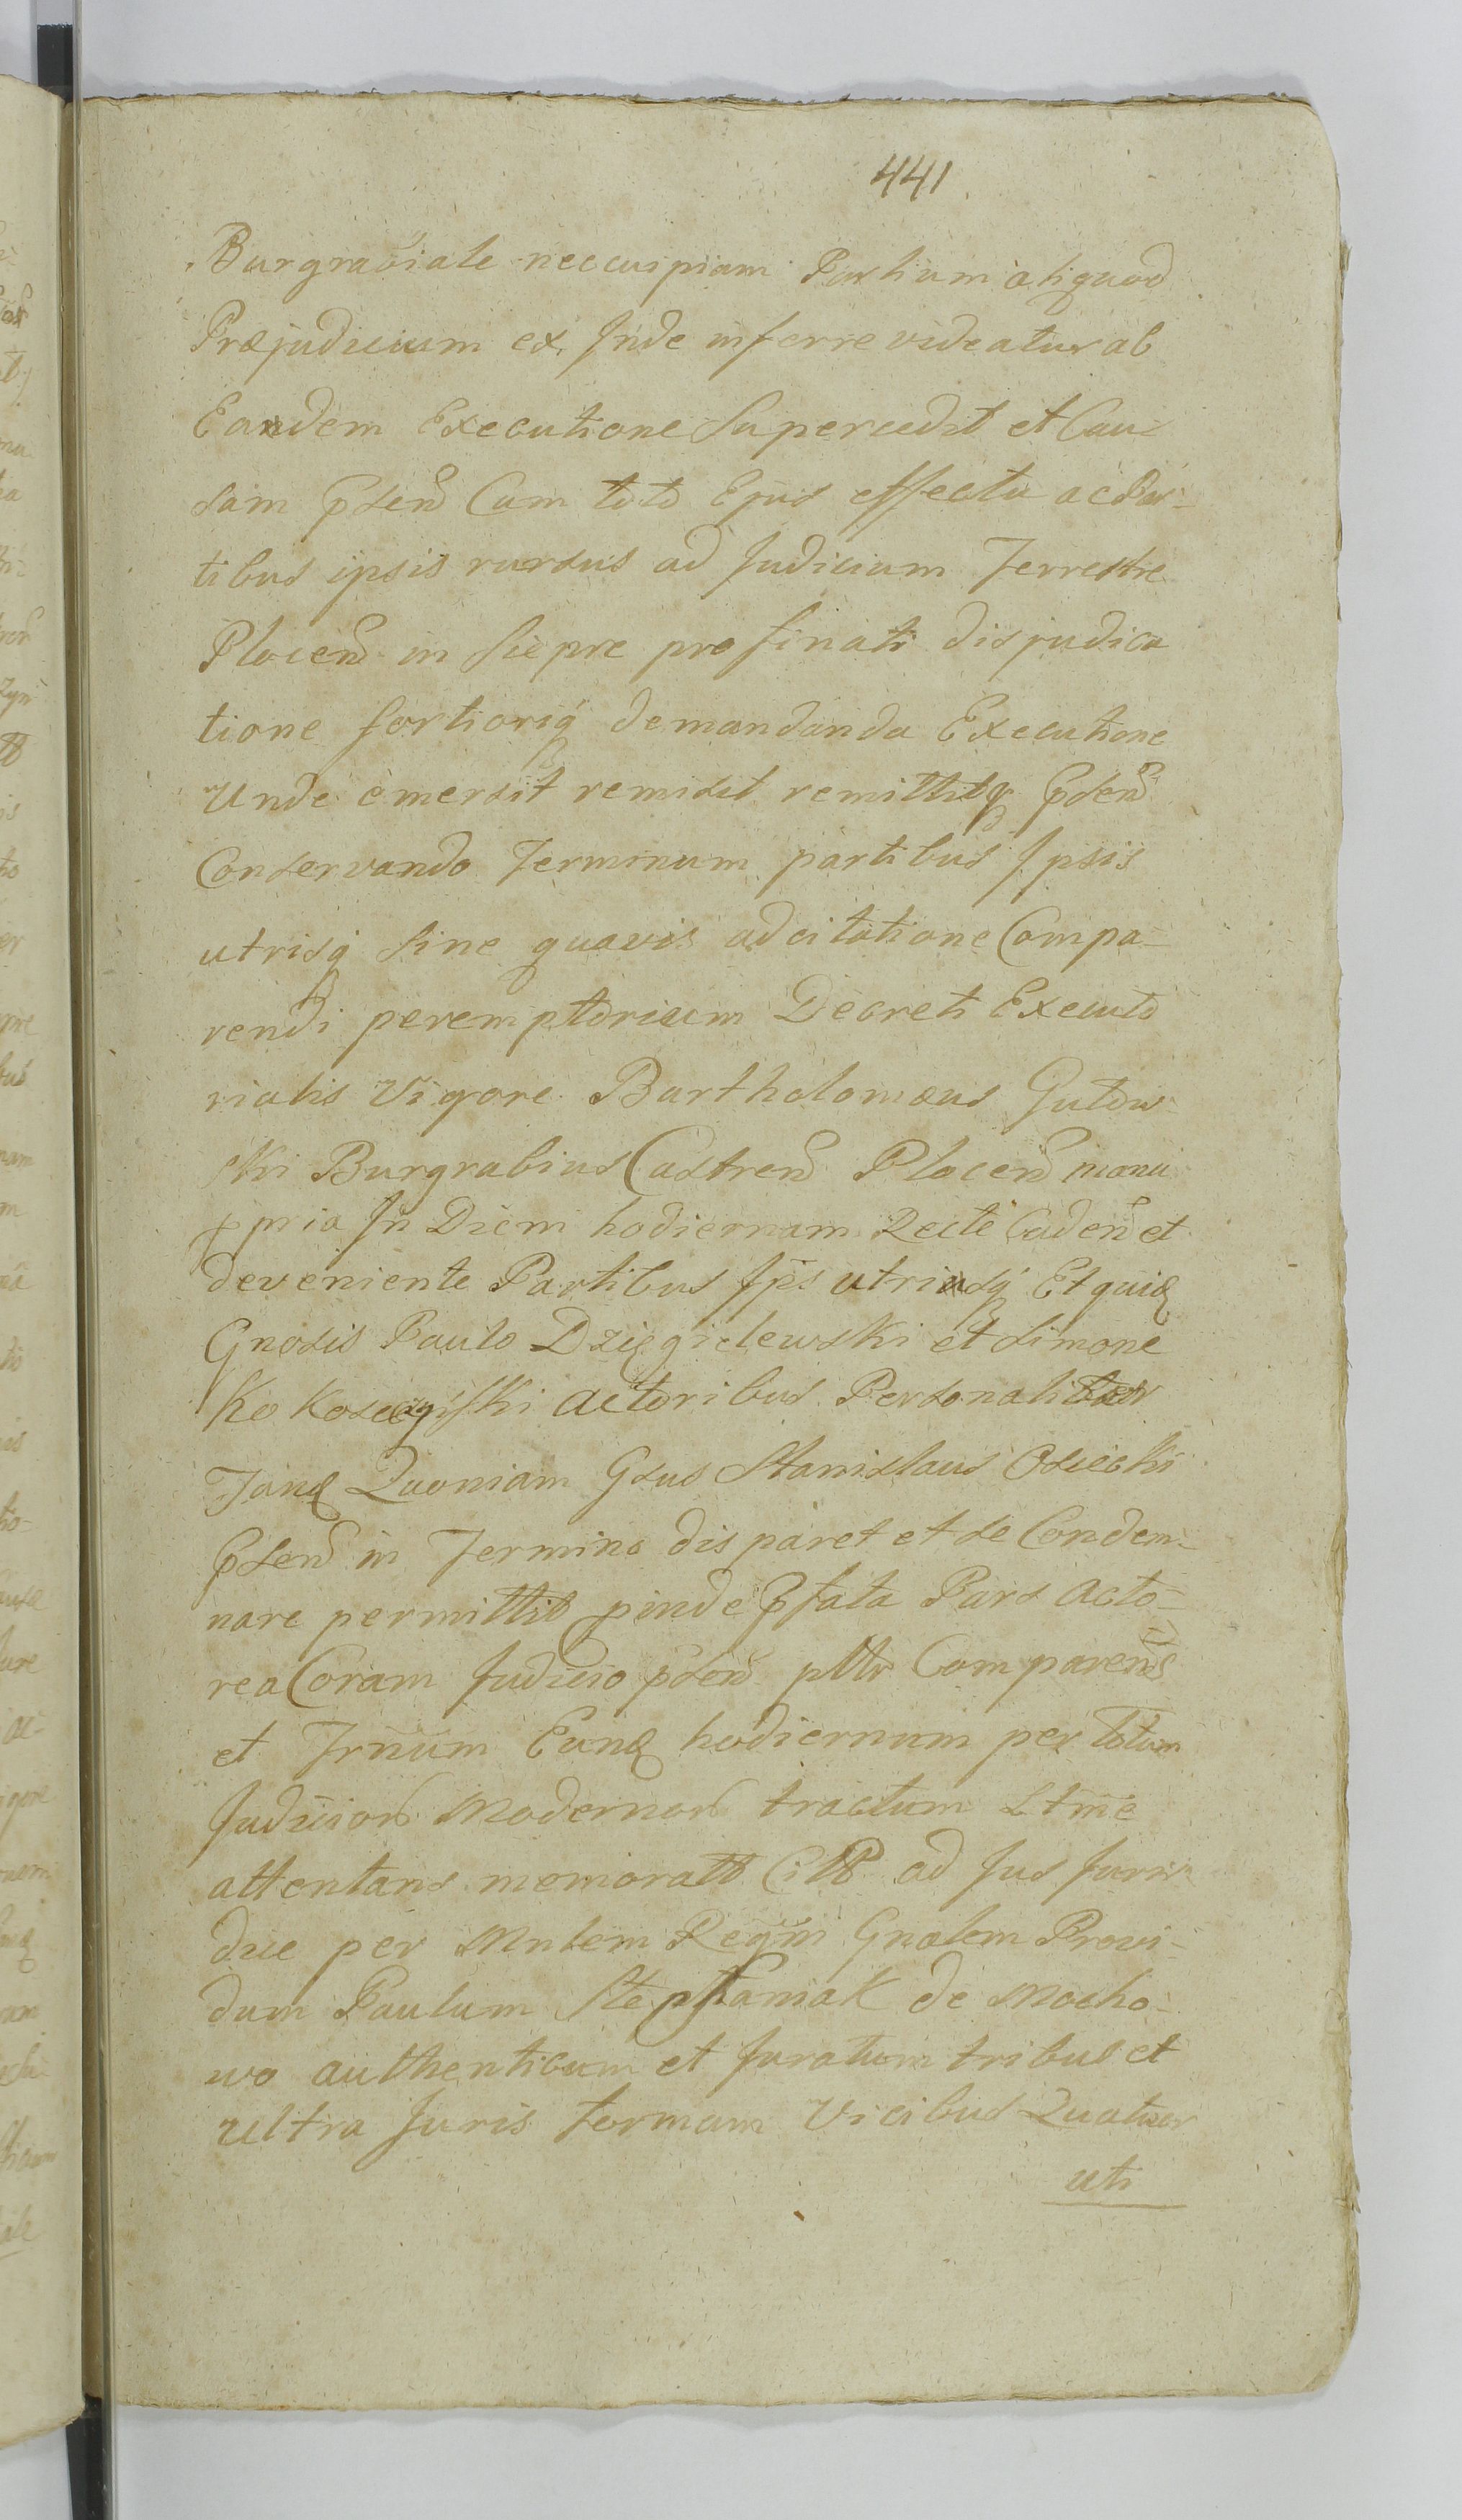 441
Burgraviale nec cuipiam Partium aliquod
Præjudicium ex Inde inferre videatur ab
Eandem Executione Supercedit et Cau-
sam pñsen Cum toto Ejus effectu ac Par-
tibus ipsis rursus ad Judicium Terrestre
Plocen in Siepre pro finali disjudica
tione fortioriq demandanda Executione
Unde emersit remisit remittitq pñsen
Conservando Terminum partibus Ipsis
utrisq Sine quavis adcitatione Compa-
rendi peremptorium Decreti Executo
rialis Vigore Bartholomæus Gutow
ski Burgrabius Castren Plocen manu
ppria In Diem hodiernam Recte Caden et
deveniente Partibus Ips utriusq Et quid
Gnosis Paulo Dzięgielewski et Simone
Ko actoribus Personaliter
Tand Quoniam Gsus Stanislaus Osiecki
psen in Termino disparet et se Condem-
nare permittit pinde pfata Pars acto-
rea Coram Judicio psen pttr Comparens
et Trnum Eund hodiernum per totum
Judicior Modernor tractum Ltme
attentans memoratt Citt ad Jus Juris
due per Mnlem Regni Gnalem Provi-
dum Paulum Stephaniak de Mocho-
wo authenticum et Juratum tribus et
ultra Juris formam Vicibus Quatuor
uti